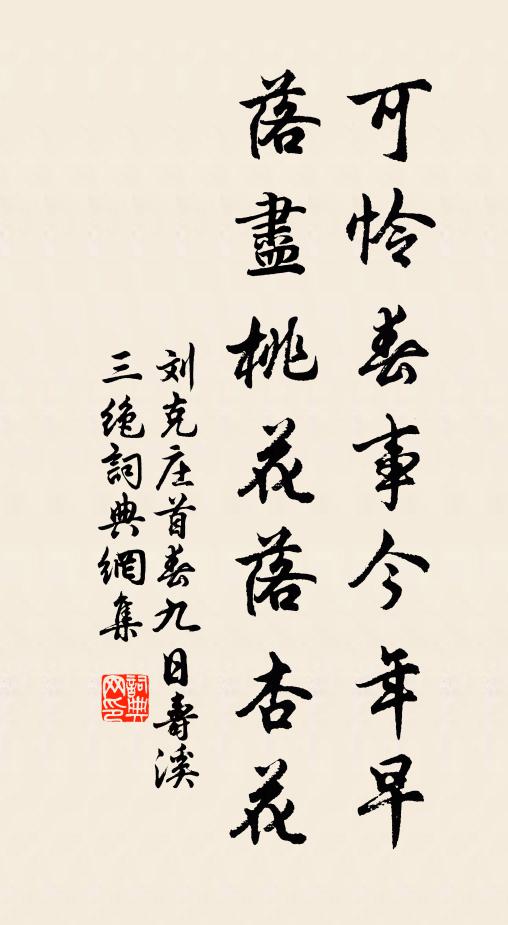 可怜春事今年早
落盡桃花落杏花
刘克庄首春九日壽溪
三绝詞典網集
詞典网印